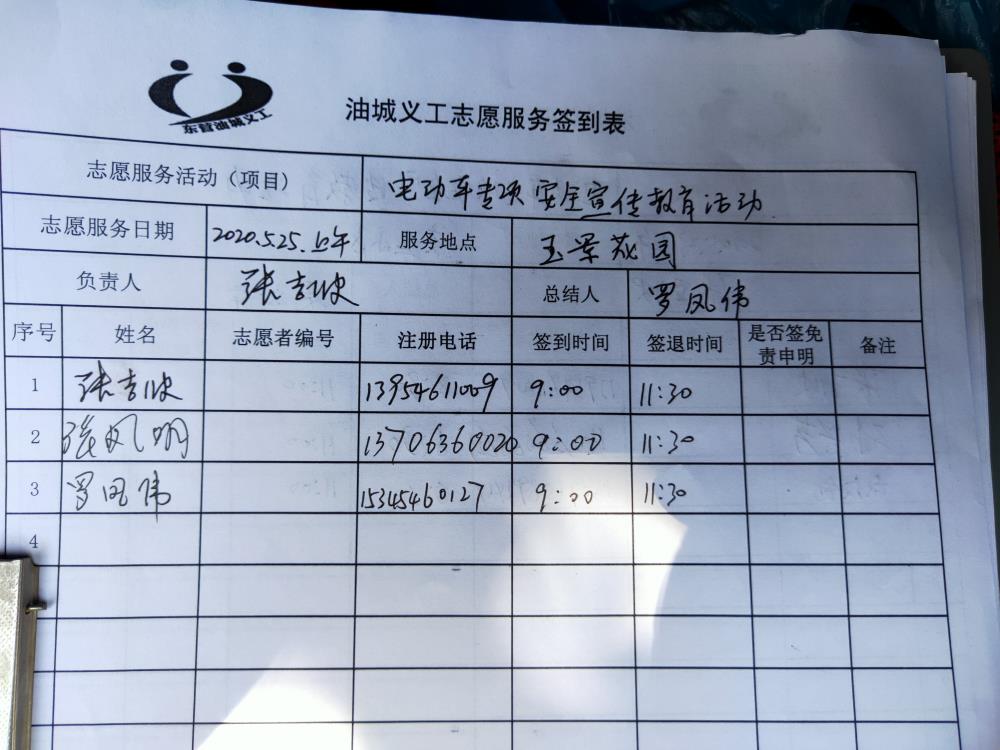 东营油城义工
油城义工志愿服务签到表
志愿服务活动（项目） 电动车专项安全宣传教育活动
志愿服务日期 2020.5.25.上午 服务地点 玉景花园
负责人 张吉快 总结人 罗凤伟
序号 姓名 志愿者编号 注册电话 签到时间 签退时间 是否签免责申明 备注
1 张吉快 13954611009 9:00 11:30
2 张凤明 13706360020 9:00 11:30
3 罗凤伟 15345460127 9:00 11:30
4